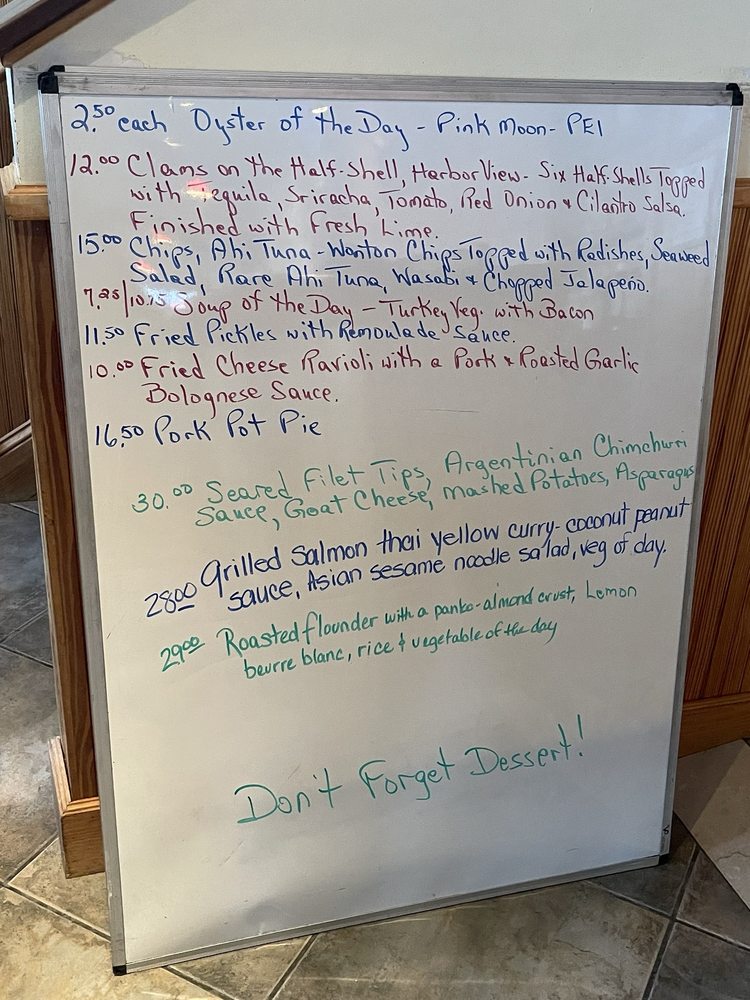 2.50 each Oyster of the Day - Pink Moon - PEI
12.00 Clams on the Half-Shell, Harbor View - Six Half-Shells Topped
with Tequila, Sriracha, Tomato, Red Onion & Cilantro Salsa.
Finished with Fresh Lime.
15.00 Chips, Ahi Tuna - Wonton Chips Topped with Radishes, Seaweed
Salad, Rare Ahi Tuna, Wasabi & Chopped Jalapeño.
7.25/10.75 Soup of the Day - Turkey Veg. with Bacon
11.50 Fried Pickles with Remoulade Sauce.
10.00 Fried Cheese Ravioli with a Pork & Roasted Garlic
Bolognese Sauce.
16.50 Pork Pot Pie
30.00 Seared Filet Tips, Argentinian Chimchurri
Sauce, Goat Cheese, Mashed Potatoes, Asparagus
28.00 Grilled Salmon thai yellow curry-coconut peanut
sauce, Asian sesame noodle salad, veg of day.
29.00 Roasted flounder with a panko-almond crust, Lemon
beurre blanc, rice & vegetable of the day
Don't Forget Dessert!